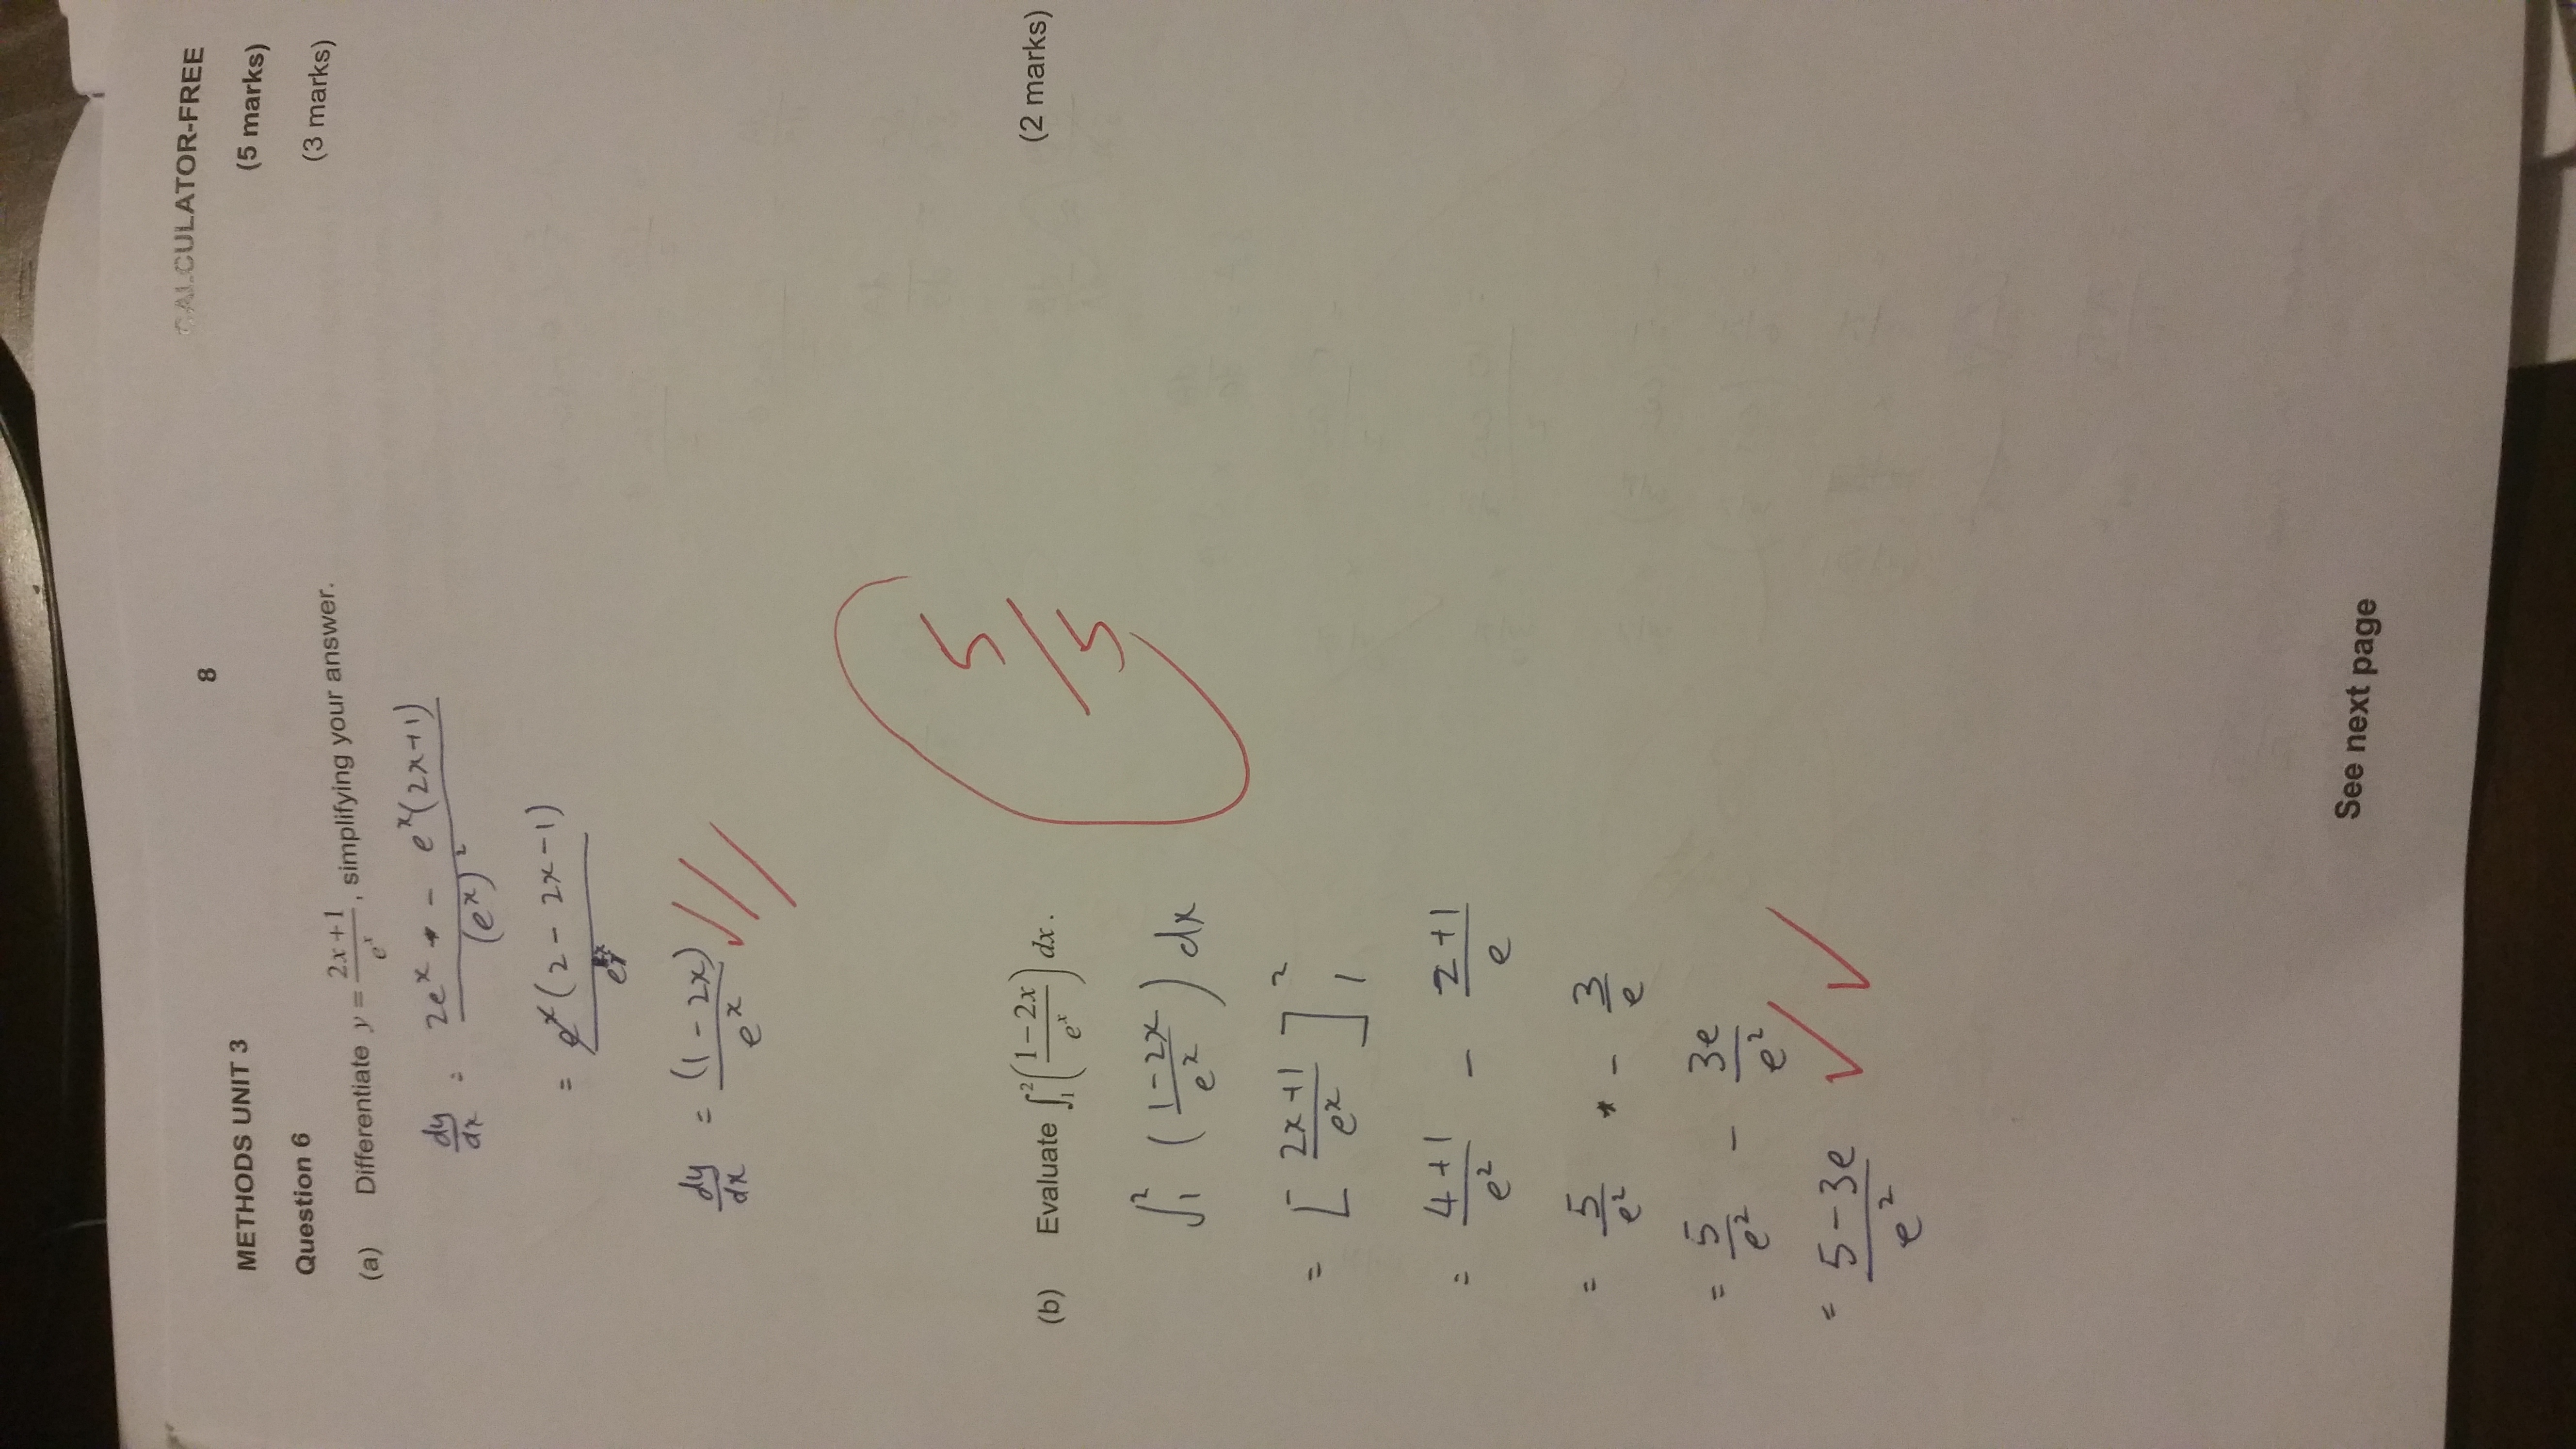 CALCULATOR-FREE
8
METHODS UNIT 3
(5 marks)
Question 6
(3 marks)
(a) Differentiate y = (2x+1)/e^x, simplifying your answer.
dy/dx = (2e^x - e^x(2x+1))/(e^x)^2
= e^x(2 - 2x - 1)/e^x
dy/dx = (1 - 2x)/e^x
5/5
(b) Evaluate ∫_1^2 ((1-2x)/e^x) dx. (2 marks)
∫_1^2 ((1-2x)/e^x) dx
= [(2x+1)/e^x]_1^2
= (4+1)/e^2 - (2+1)/e
= 5/e^2 - 3/e
= 5/e^2 - 3e/e^2
= (5-3e)/e^2
See next page